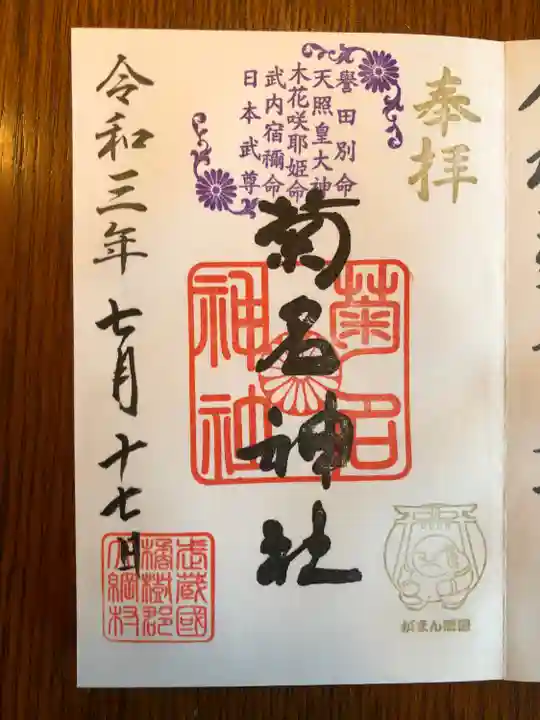 奉拝
誉田別命
天照皇大神
木花咲耶姫命
武内宿禰命
日本武尊
菊名神社
菊名
神社
令和三年 七月 十七日
武蔵國
橘樹郡
大綱村
がまん